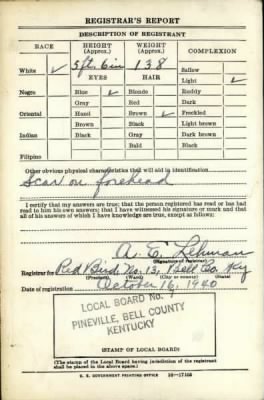 REGISTRAR'S REPORT
DESCRIPTION OF REGISTRANT
RACE HEIGHT (Approx.) WEIGHT (Approx.) COMPLEXION
White ✓ 5ft. 6in 138 Sallow
EYES HAIR Light ✓
Negro Blue ✓ Blonde Ruddy
Gray Red Dark
Oriental Hazel Brown ✓ Freckled
Brown Black Light brown
Indian Black Gray Dark brown
Bald Black
Filipino
Other obvious physical characteristics that will aid in identification
Scar on forehead
I certify that my answers are true; that the person registered has read or has had
read to him his own answers; that I have witnessed his signature or mark and that
all of his answers of which I have knowledge are true, except as follows:
A. E. Lehman
(Signature of registrar)
Registrar for Red Bird No. 13, Bell Co. Ky
(Precinct) (Ward) (City or county) (State)
Date of registration October 16, 1940
LOCAL BOARD No.
PINEVILLE, BELL COUNTY
KENTUCKY
(STAMP OF LOCAL BOARD)
(The stamp of the Local Board having jurisdiction of the registrant
shall be placed in the above space.)
U. S. GOVERNMENT PRINTING OFFICE 16—17105